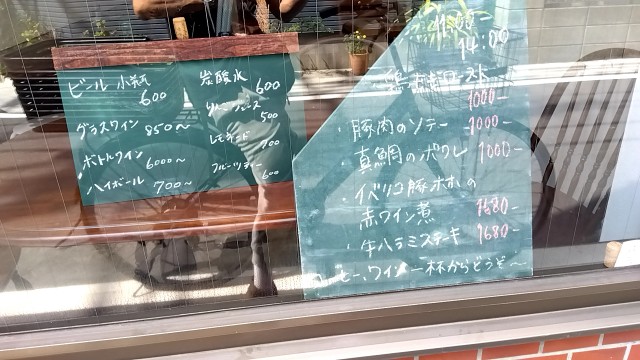 ビール 小瓶 600
グラスワイン 850〜
ボトルワイン 6000〜
ハイボール 700〜
炭酸水 600
りんごジュース 500
レモネード 700
フルーツティー 600
11:00 -
14:00
鶏ももロースト
1000-
・豚肉のソテー 1000-
・真鯛のポワレ 1000-
・イベリコ豚ホホの
赤ワイン煮 1680-
・牛ハラミステーキ 1680-
ワイン 一杯からどうぞ〜